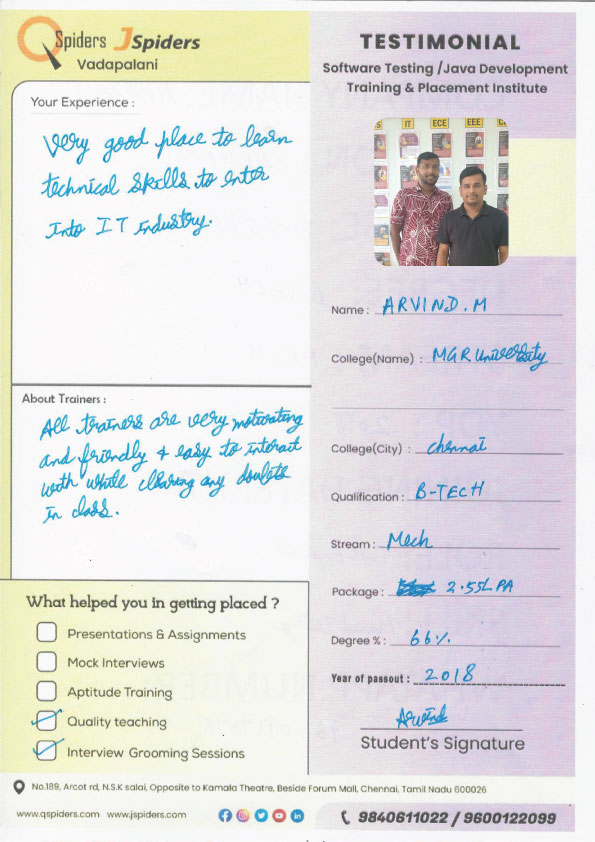 QSpiders JSpiders
Vadapalani
Your Experience :
Very good place to learn
technical skills to enter
into IT industry.
About Trainers :
All trainers are very motivating
and friendly & easy to interact
with while clearing any doubts
in class.
What helped you in getting placed ?
Presentations & Assignments
Mock Interviews
Aptitude Training
Quality teaching
Interview Grooming Sessions
TESTIMONIAL
Software Testing /Java Development
Training & Placement Institute
IT ECE EEE
Name : ARVIND.M
College(Name) : MGR University
College(City) : Chennai
Qualification : B-TECH
Stream : Mech
Package : 2.55LPA
Degree % : 66%
Year of passout : 2018
Arvind
Student's Signature
No.189, Arcot rd, N.S.K salai, Opposite to Kamala Theatre, Beside Forum Mall, Chennai, Tamil Nadu 600026
www.qspiders.com www.jspiders.com
9840611022 / 9600122099